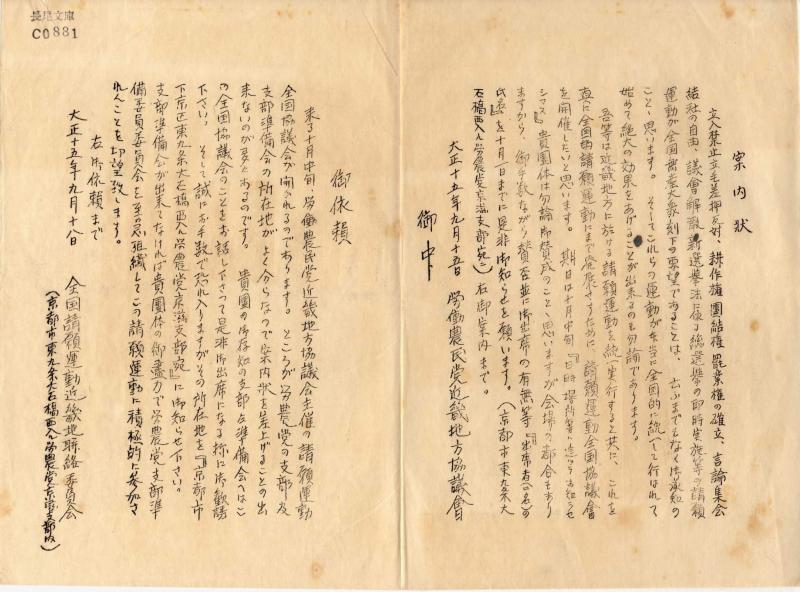 長尾文庫
C0881
案内状
立入禁止立毛差押反対、耕作権団結権罷業権の確立、言論集会
結社の自由、議会解散新選挙法に依る総選挙の即時実施等の請願
運動が全国無産大衆刻下の要望であることは、云ふまでもなく御承知の
ことゝ思います。そしてこれらの運動が本当に全国的に統一して行はれて
始めて絶大の効果をあげることが出来るのも勿論であります。
吾等は近畿地方に於ける請願運動を統一実行すると共に、これを
真に全国的請願運動にまで発展さすために、請願運動全国協議会
を開催したいと思います。期日は十月中旬『日時場所等は追つてお知らせ
シマス』貴團体は勿論御賛成のことゝ思いますが会場の都合もあり
ますから、御手数ながら賛否並に御出席の有無等『出席者(氏名)の
氏名』を十月一日までに是非御知らせを願います。(京都市東九条大
石橋西入ル労農党京滋支部宛)右御案内まで。
大正十五年九月十五日 労働農民党近畿地方協議會
御中
御依頼
来る十月中旬、労働農民党近畿地方協議会主催の請願運動
全国協議会が開かれるのであります。ところが労農党の支部及
支部準備会の所在地がよく分らないので案内状を差上げることの出
来ないのが多々あるのです。貴團の御存知の支部及準備会へはこ
の全国協議会のことをお話し下さつて是非御出席になる様に御勧誘
下さい。そして誠にお手数で恐れ入りますがその所在地を『京都市
下京区東九条大石橋西入労農党京滋支部宛』に御知らせ下さい。
支部準備会が出来てなければ貴團体の御盡力で労農党支部準
備委員委員会を至急組織してこの請願運動に積極的に参加さ
れんことを切望致します。
右御依頼まで
大正十五年九月十八日
全国請願運動近畿地聯絡委員会
(京都市東九条大石橋西入ル労農党京滋支部版)